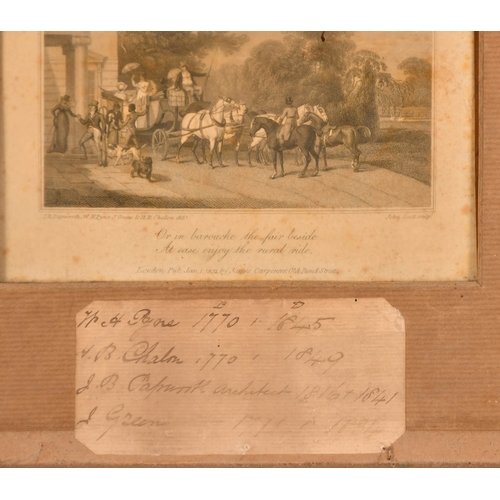 J. B. Papworth, W. H. Pyne, J. Green & H. B. Chalon del.
John Scott sculp.
Or in barouche the fair beside
At ease enjoy the rural ride.
London, Pub. Jan. 1, by James Carpenter Old Bond Street.
B D
W H Pyne 1770 1845
H B Chalon 1770 1849
J B Papworth architect 1841
J Green